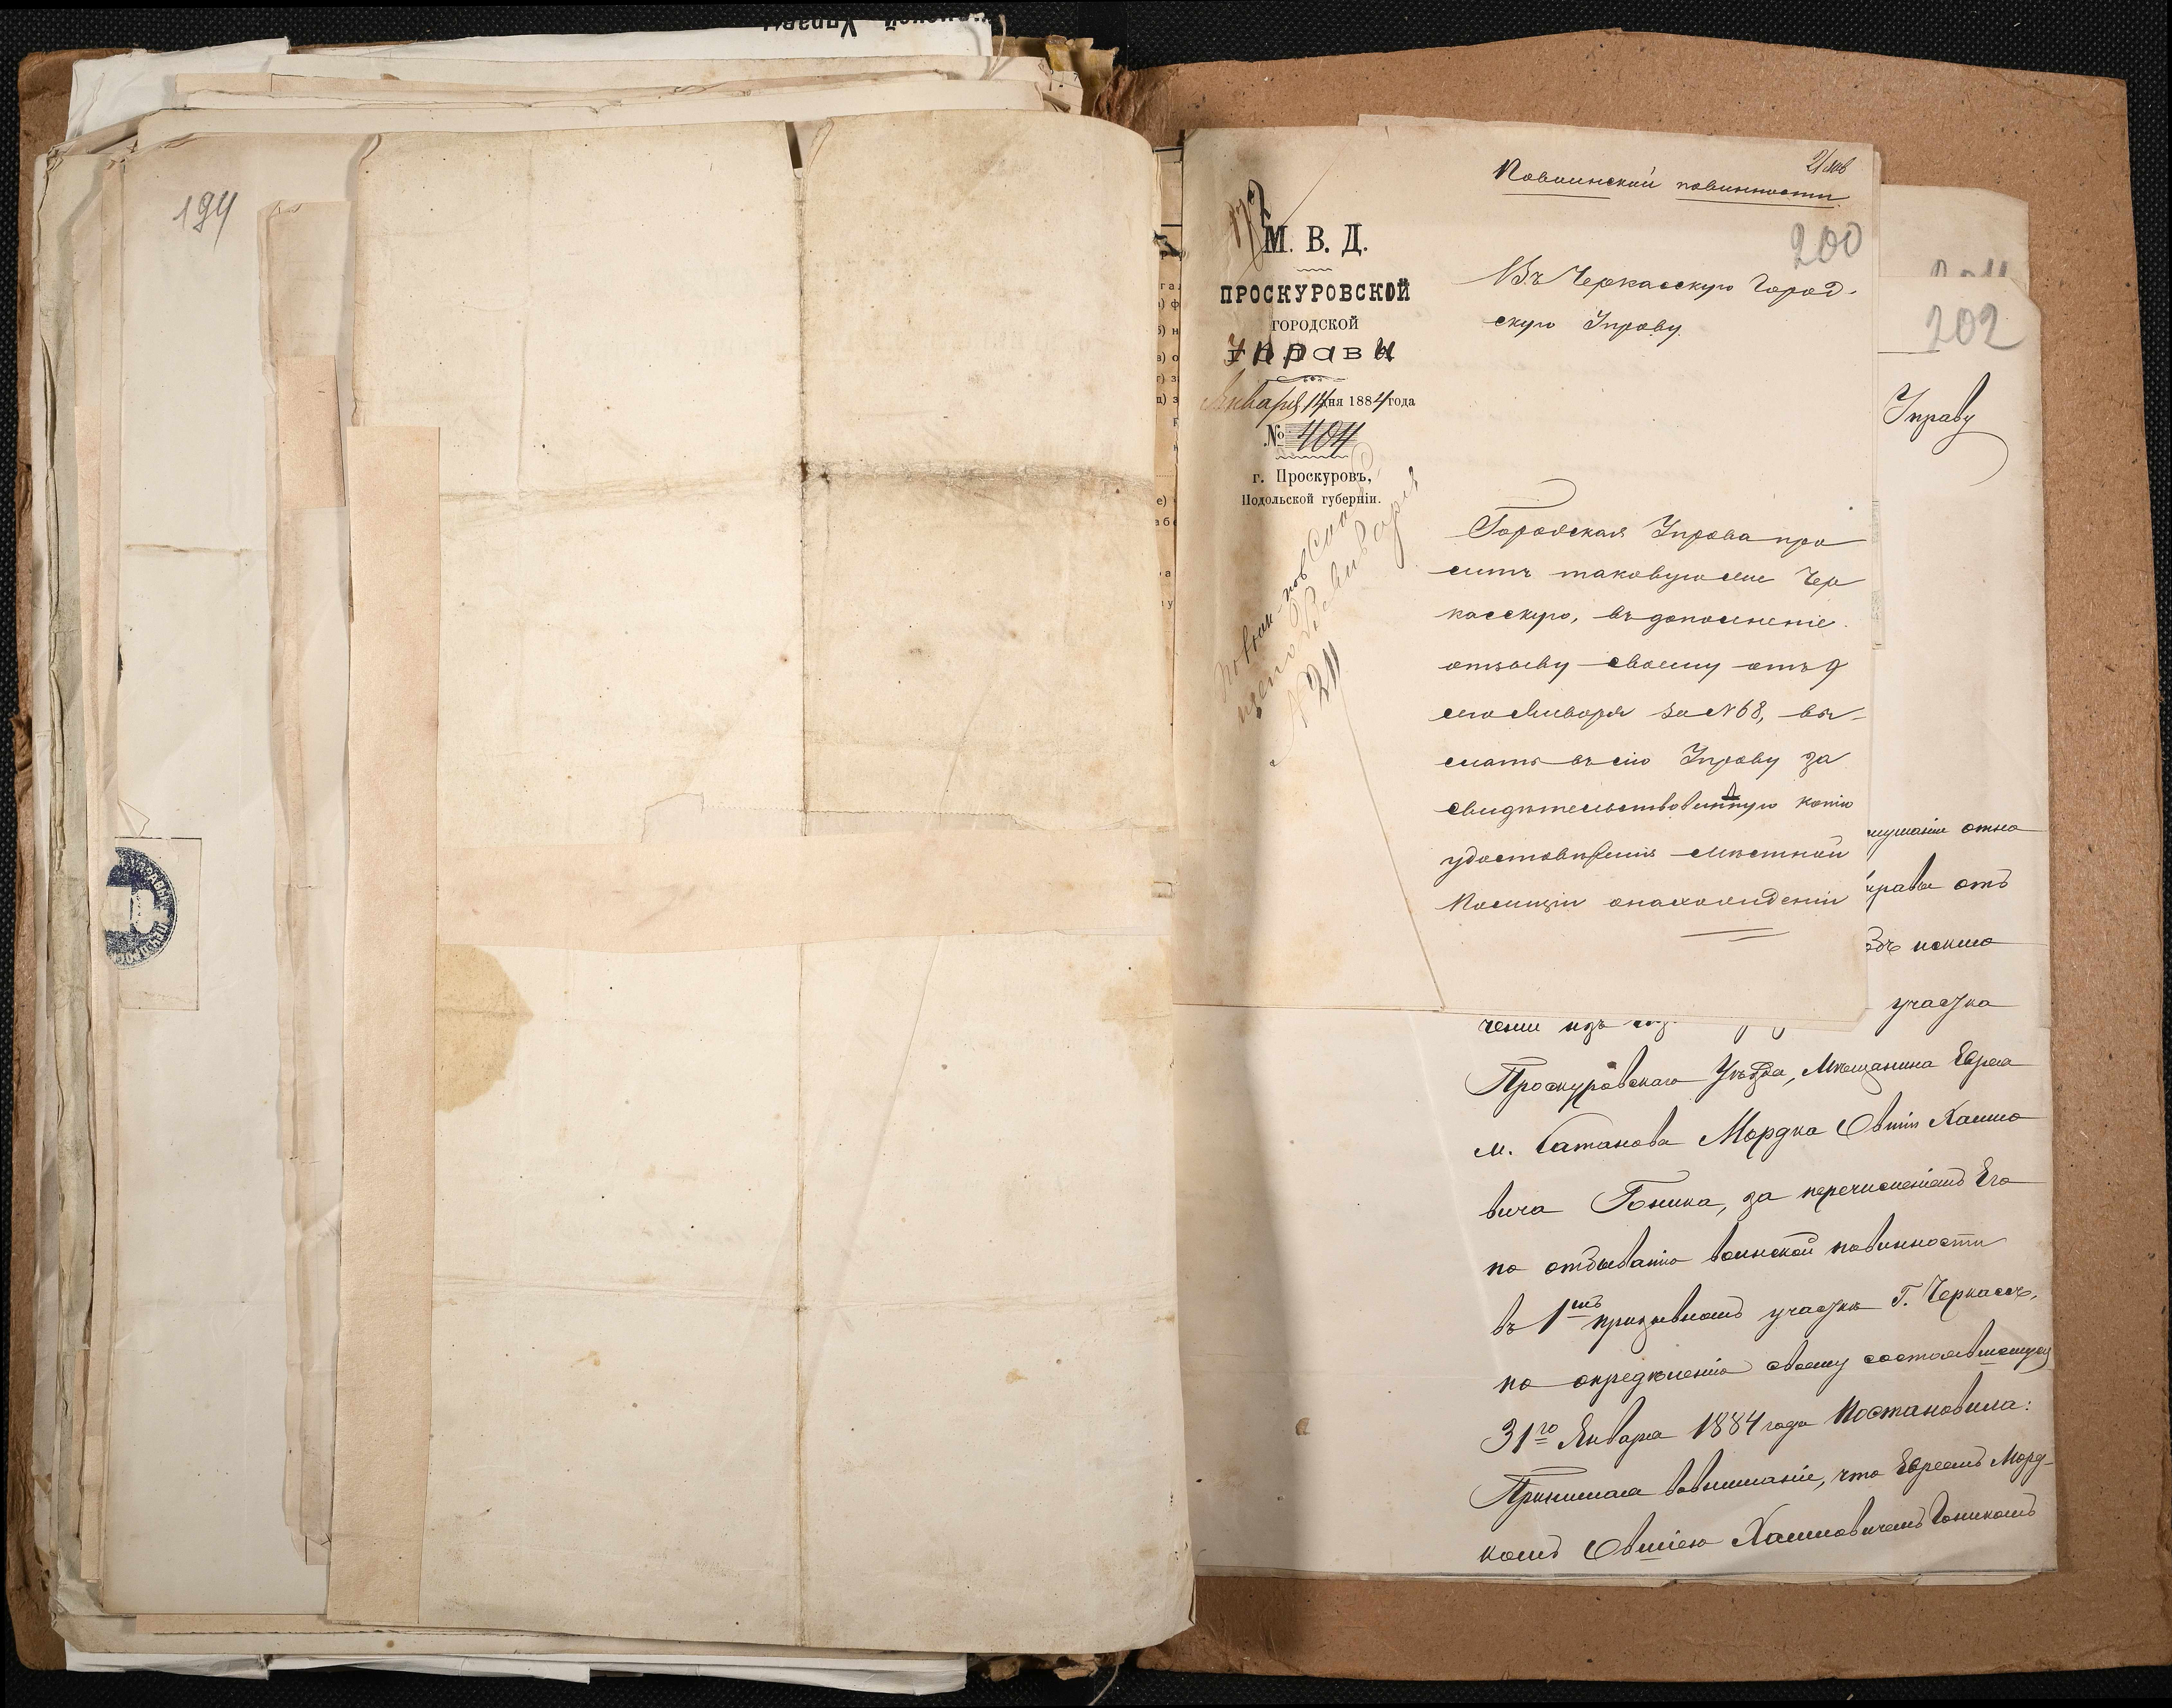 194
21 янв
По воинской повинности.
200
М. В. Д.
ПРОСКУРОВСКОЙ
ГОРОДСКОЙ
Управы
Января 14 дня 1884 года
№ 404
г. Проскуровъ,
Подольской губерніи.
Въ Черкасскую Город-
скую Управу.
Городская Управа про
ситъ таковую же Чер
касскую, въ дополненіе
отзыву своему отъ 9
сего Января за № 68, вы-
слать въ сію Управу за
свидѣтельствованную копію
удостовѣренія мѣстной
Полиціи о нахожденіи
202
Управу
слушали отно
управы отъ
участка
ченіи изъ
Проскуровскаго Уѣзда, Мѣщанина Еврея
м. Сатанова Мордка Овшія Хаимо
вича Гоника, за перечисленіемъ Его
по отбыванію воинской повинности
въ 1мъ призывномъ участкѣ Г. Черкассъ,
по опредѣленію своему состоявшемуся
31го Января 1884 года Постановила:
Принимая во вниманіе, что Евреемъ Морд-
комъ Овшіею Хаимовичемъ Гоникомъ